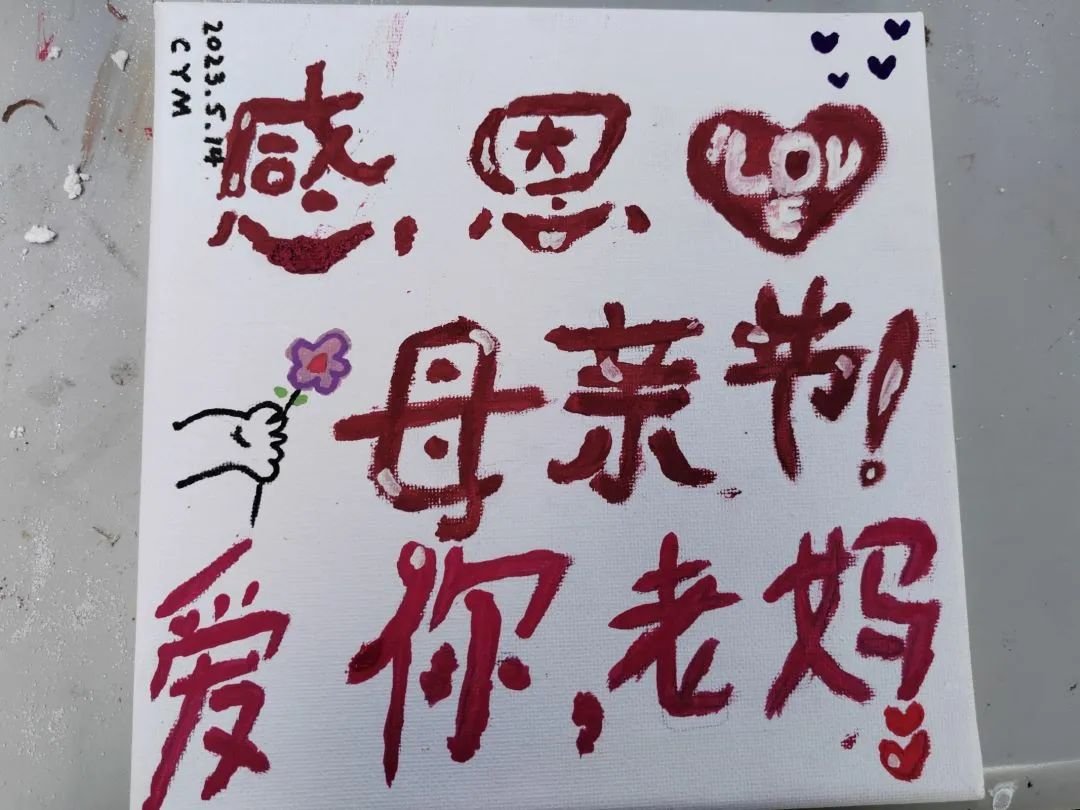 2023.5.14
CYM
感恩
LOVE
母亲节!
爱你,老妈